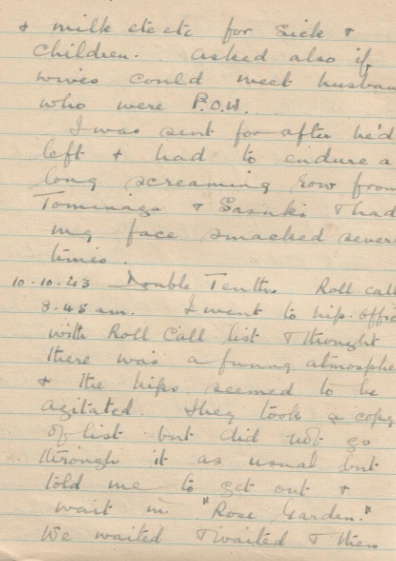 & milk etc etc for sick &
children. Asked also if
wives could meet husban
who were P.O.W.
I was sent for after he'd
left & had to endure a
long screaming row from
Tominaga & Sasuki & had
my face smacked sever
times.
10.10.43 Double Tenth. Roll call
8.45 am. I went to nip. offic
with Roll Call list & thought
there was a funny atmosphe
& the nips seemed to be
agitated. They took a copy
of list but did not go
through it as usual but
told me to get out &
wait in "Rose Garden."
We waited & waited & then